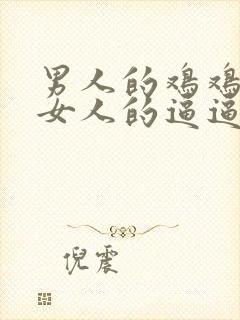 男人的鸡鸡
女人的逼逼
倪震